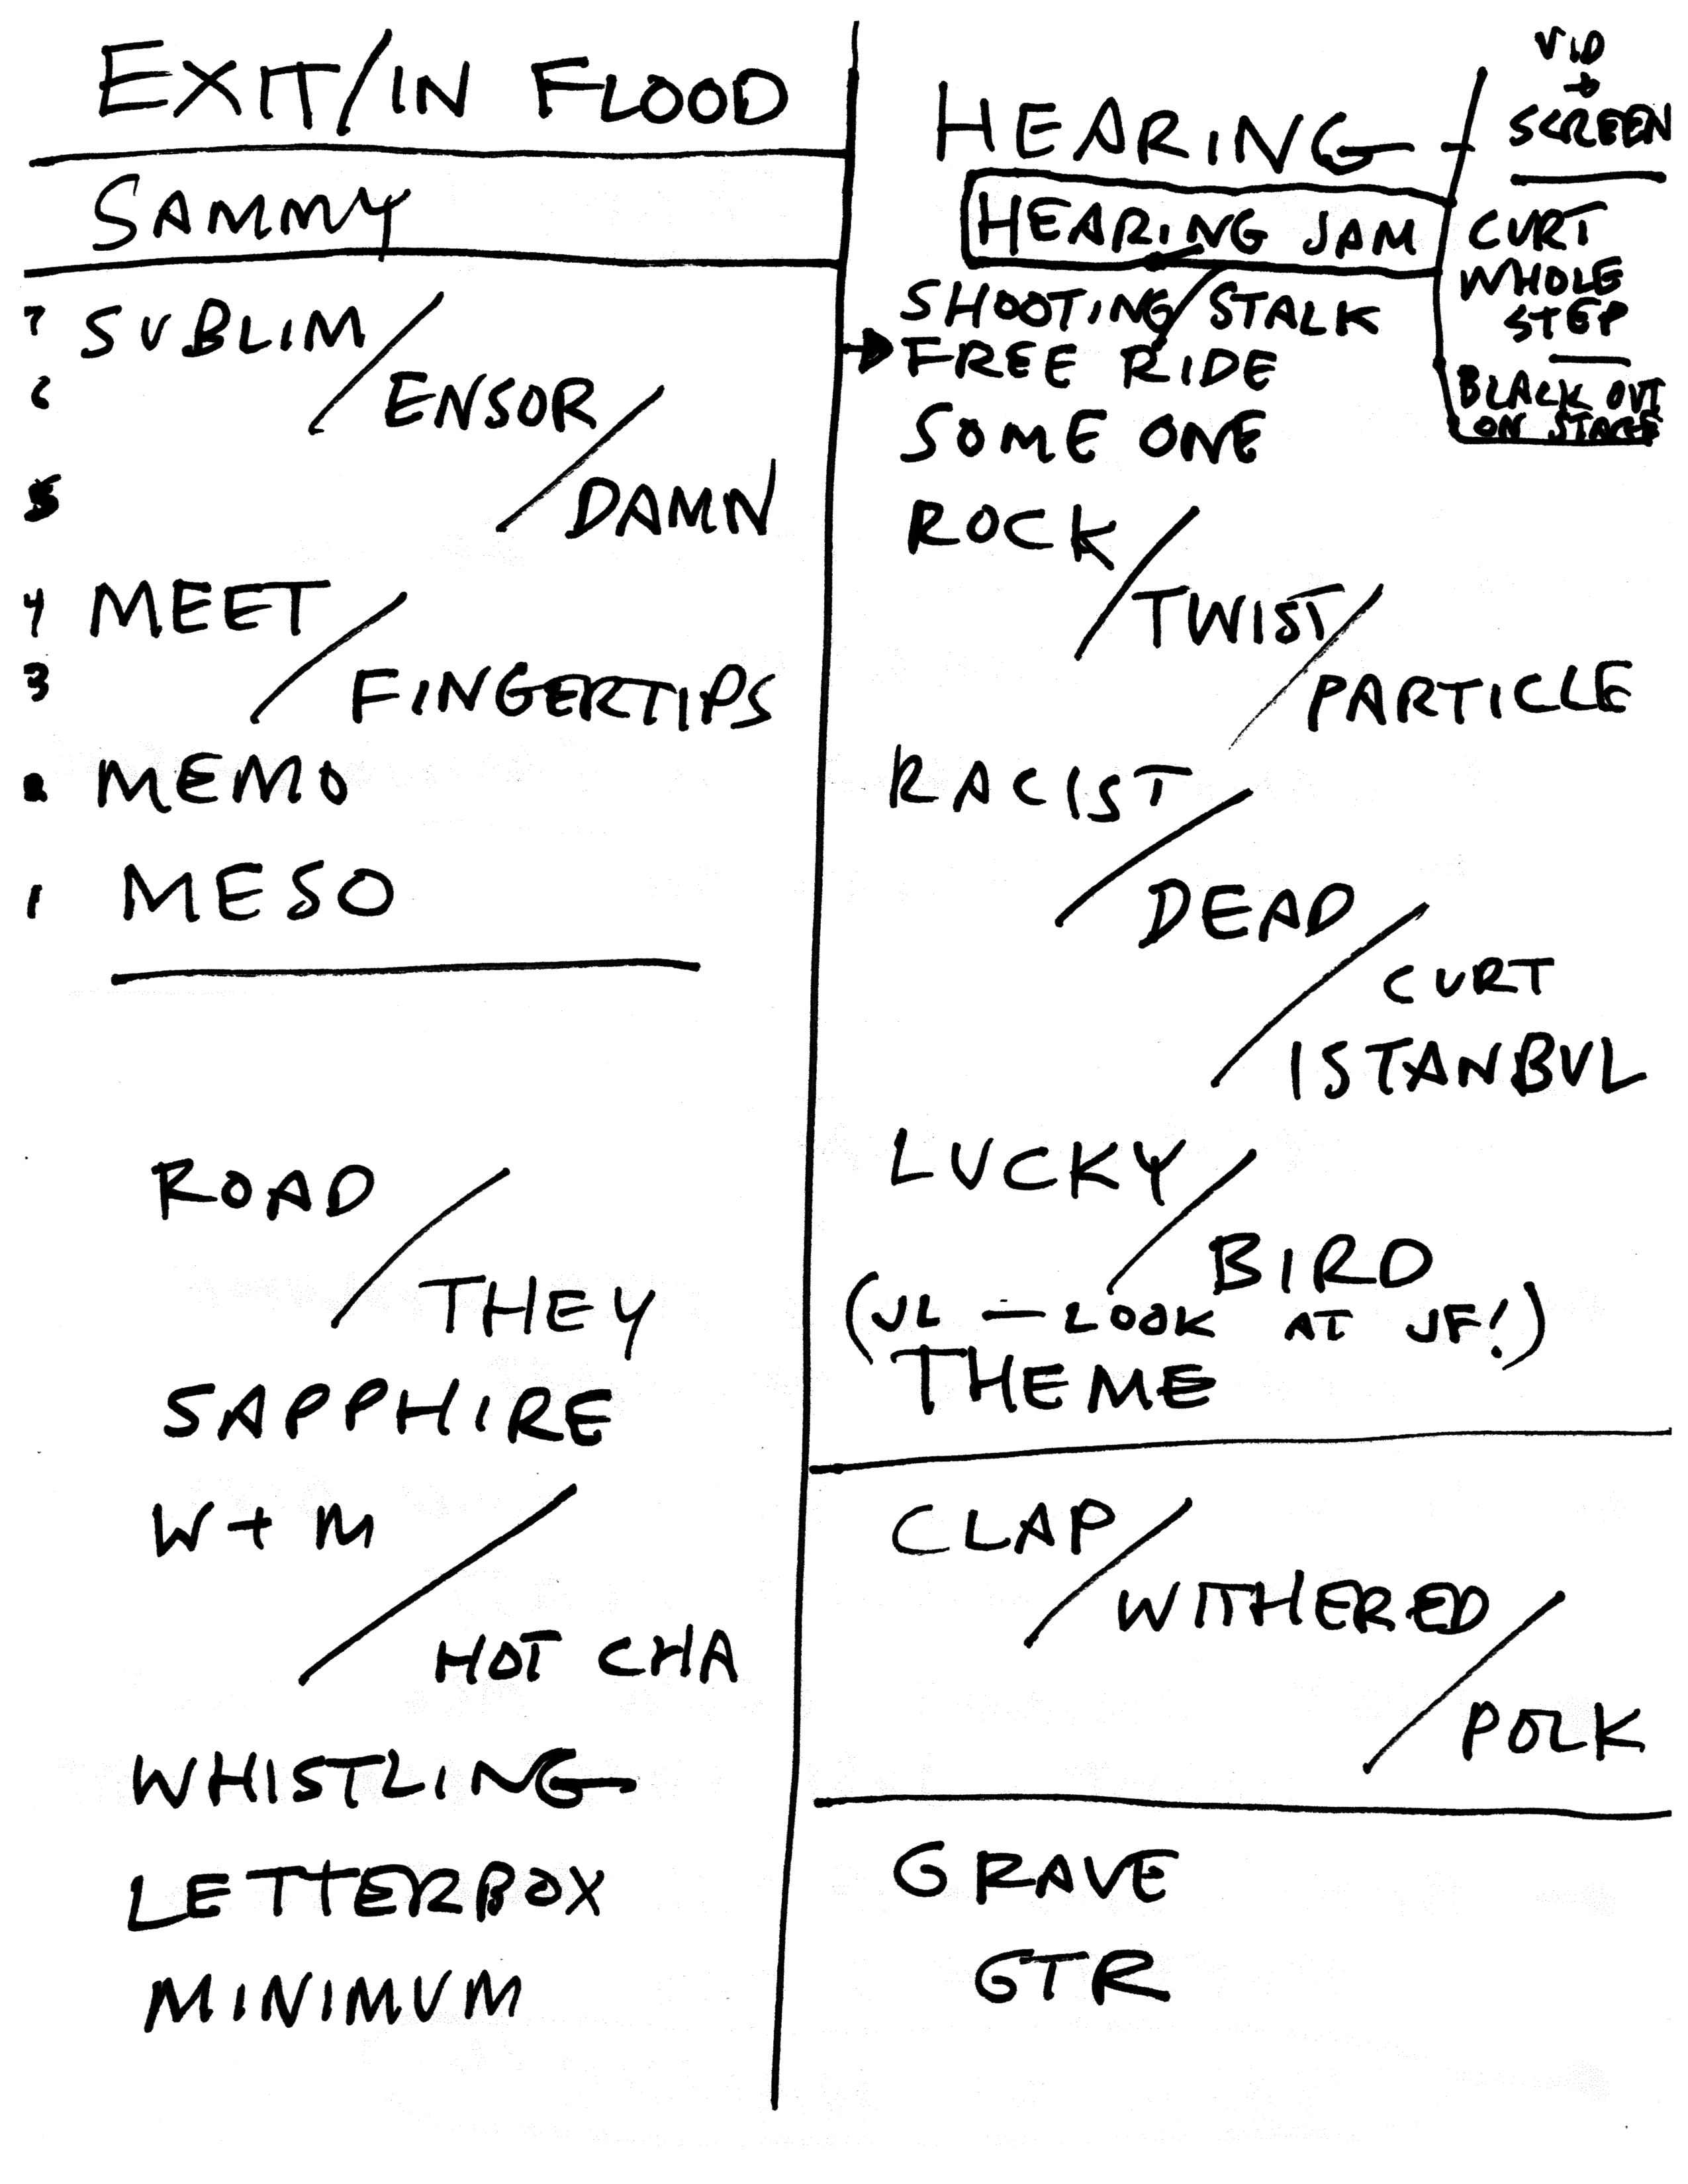 EXIT/IN FLOOD
SAMMY
7 SUBLIM/
6 ENSOR/
5 DAMN
4 MEET/
3 FINGERTIPS
2 MEMO
1 MESO
ROAD/
THEY
SAPPHIRE
W+M/
HOT CHA
WHISTLING
LETTERBOX
MINIMUM
HEARING -
HEARING JAM
SHOOTING/STALK
→FREE RIDE
SOME ONE
ROCK/
TWIST/
PARTICLE
RACIST/
DEAD/
CURT
ISTANBUL
LUCKY/
BIRD
(JL — LOOK AT JF!)
THEME
CLAP/
WITHERED/
POLK
GRAVE
GTR
VID
→
SCREEN
CURT
WHOLE
STEP
BLACK OUT
ON STAGE